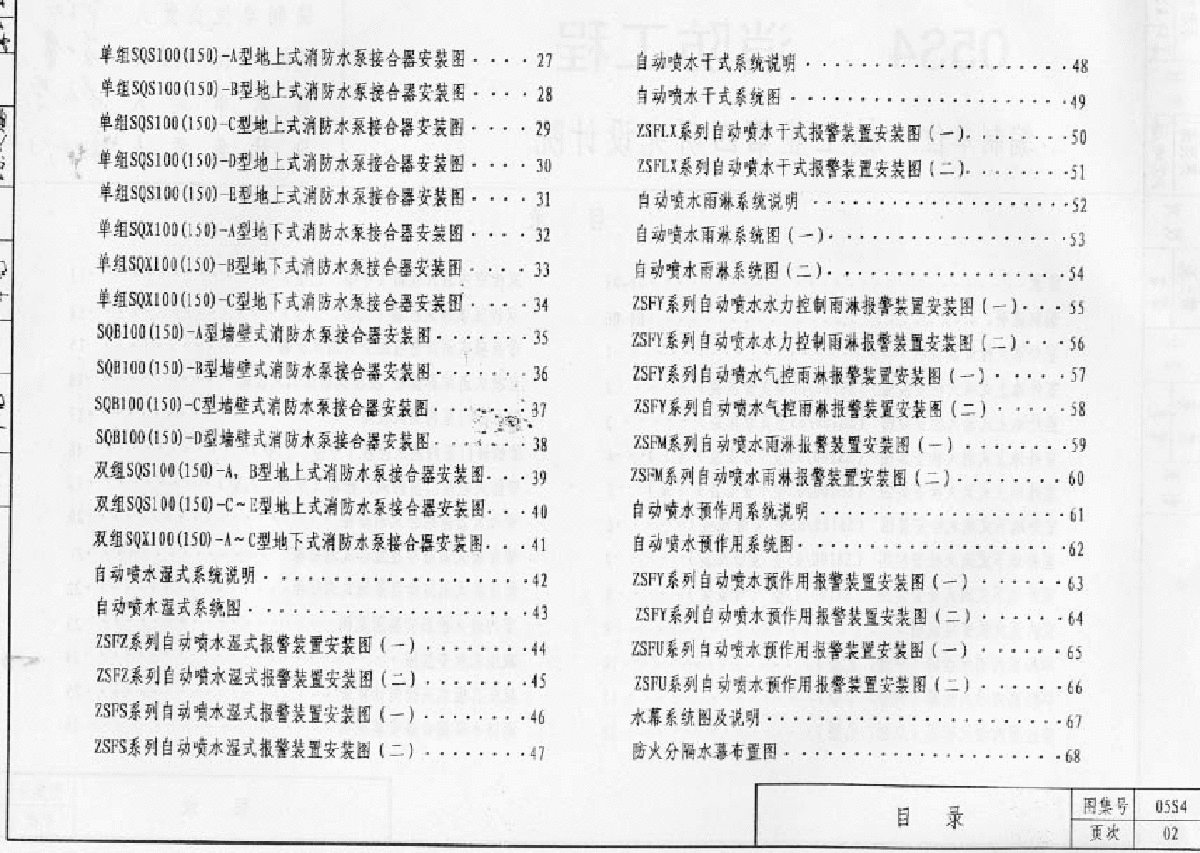 单组SQS100(150)-A型地上式消防水泵接合器安装图 · · · · 27
单组SQS100(150)-B型地上式消防水泵接合器安装图 · · · · 28
单组SQS100(150)-C型地上式消防水泵接合器安装图 · · · · 29
单组SQS100(150)-D型地上式消防水泵接合器安装图 · · · · 30
单组SQS100(150)-E型地上式消防水泵接合器安装图 · · · · 31
单组SQX100(150)-A型地下式消防水泵接合器安装图 · · · · 32
单组SQX100(150)-B型地下式消防水泵接合器安装图 · · · · 33
单组SQX100(150)-C型地下式消防水泵接合器安装图 · · · · 34
SQB100(150)-A型墙壁式消防水泵接合器安装图 · · · · · · 35
SQB100(150)-B型墙壁式消防水泵接合器安装图 · · · · · · 36
SQB100(150)-C型墙壁式消防水泵接合器安装图 · · · · · · 37
SQB100(150)-D型墙壁式消防水泵接合器安装图 · · · · · · 38
双组SQS100(150)-A, B型地上式消防水泵接合器安装图 · · · 39
双组SQS100(150)-C~E型地上式消防水泵接合器安装图 · · · 40
双组SQX100(150)-A~C型地下式消防水泵接合器安装图 · · · 41
自动喷水湿式系统说明 · · · · · · · · · · · · · · · · 42
自动喷水湿式系统图 · · · · · · · · · · · · · · · · · 43
ZSFZ系列自动喷水湿式报警装置安装图(一) · · · · · · · 44
ZSFZ系列自动喷水湿式报警装置安装图(二) · · · · · · · 45
ZSFS系列自动喷水湿式报警装置安装图(一) · · · · · · · 46
ZSFS系列自动喷水湿式报警装置安装图(二) · · · · · · · 47
自动喷水干式系统说明 · · · · · · · · · · · · · · · · 48
自动喷水干式系统图 · · · · · · · · · · · · · · · · · 49
ZSFLX系列自动喷水干式报警装置安装图(一) · · · · · · · 50
ZSFLX系列自动喷水干式报警装置安装图(二) · · · · · · · 51
自动喷水雨淋系统说明 · · · · · · · · · · · · · · · · 52
自动喷水雨淋系统图(一) · · · · · · · · · · · · · · · 53
自动喷水雨淋系统图(二) · · · · · · · · · · · · · · · 54
ZSFY系列自动喷水水力控制雨淋报警装置安装图(一) · · · · 55
ZSFY系列自动喷水水力控制雨淋报警装置安装图(二) · · · · 56
ZSFY系列自动喷水气控雨淋报警装置安装图(一) · · · · · · 57
ZSFY系列自动喷水气控雨淋报警装置安装图(二) · · · · · · 58
ZSFM系列自动喷水雨淋报警装置安装图(一) · · · · · · · 59
ZSFM系列自动喷水雨淋报警装置安装图(二) · · · · · · · 60
自动喷水预作用系统说明 · · · · · · · · · · · · · · · 61
自动喷水预作用系统图 · · · · · · · · · · · · · · · · 62
ZSFY系列自动喷水预作用报警装置安装图(一) · · · · · · 63
ZSFY系列自动喷水预作用报警装置安装图(二) · · · · · · 64
ZSFU系列自动喷水预作用报警装置安装图(一) · · · · · · 65
ZSFU系列自动喷水预作用报警装置安装图(二) · · · · · · 66
水幕系统图及说明 · · · · · · · · · · · · · · · · · · 67
防火分隔水幕布置图 · · · · · · · · · · · · · · · · · 68
目 录
图集号 05S4
页次 02